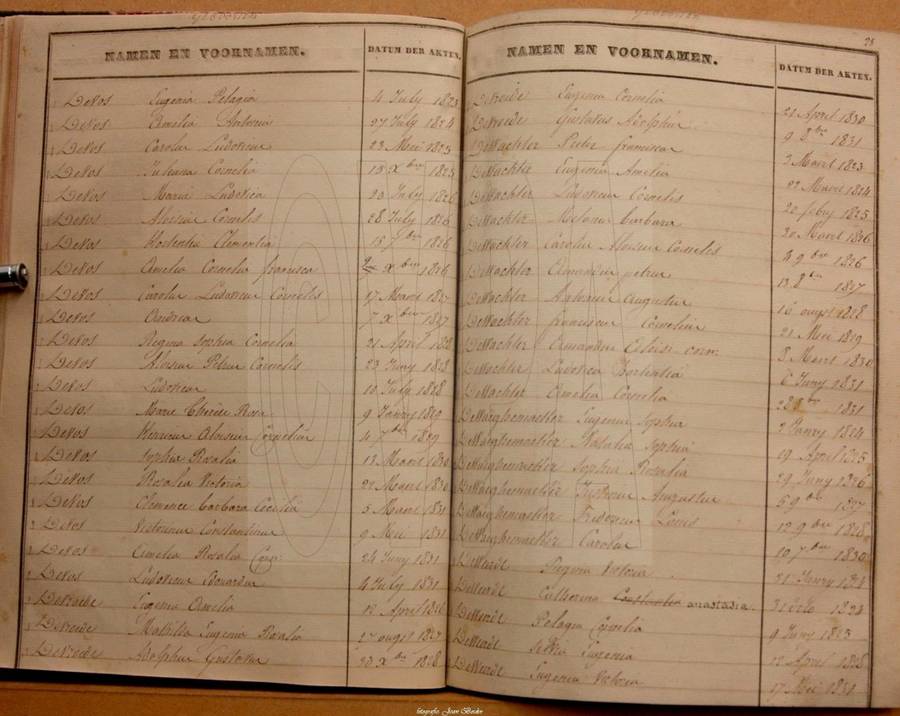 Geboorten
NAMEN EN VOORNAMEN. DATUM DER AKTEN.
DeVos Eugenia Pelagia 4 July 1823
DeVos Amelia Antonia 27 July 1824
DeVos Carolus Ludovicus 23 Mei 1825
DeVos Juliana Cornelia 18 Xbre 1825
DeVos Maria Ludovica 20 July 1826
DeVos Aloisius Cornelis 28 July 1826
DeVos Hortentia Clementia 15 7bre 1826
DeVos Amelia Cornelia francisca Xbre 1826
DeVos Carolus Ludovicus Cornelis 17 Maart 1827
DeVos 7 Xbre 1827
DeVos Regina Sophia Cornelia 21 April 1828
DeVos Aloisius Petrus Cornelis 23 Juny 1828
DeVos Ludovicus 10 July 1828
DeVos Marie Therese Rosa 9 Janry 1829
DeVos Aloisius Cornelius 4 7bre 1829
DeVos Sophia Rosalia 13 Maart 1830
DeVos Rosalia Victoria 22 Maart 1830
DeVos Clemence barbara Cecilia 5 Maart 1831
DeVos Victorinus Constantinus 9 Mei 1831
DeVos Amelia Rosalia 24 Juny 1831
DeVos Ludovicus 4 July 1831
DeVreide Eugenia Amelia 12 April 1826
DeVreide Mathilda Eugenia Rosalia 27 augst 1827
DeVreide Adolphus Gustavus 20 Xbre 1828
Geboorten
25
NAMEN EN VOORNAMEN. DATUM DER AKTEN.
DeVreide Eugenia Cornelia 21 April 1830
DeVreide Gustavus Adolphus 9 8bre 1831
DeWachter Pieter franciscus 2 Maart 1823
DeWachter Eugenia Amelia 22 Maart 1824
DeWachter Ludovicus Cornelis 20 feby 1825
DeWachter Melania barbara 20 Maart 1826
DeWachter Carolus Aloisius Cornelis 4 9bre 1826
DeWachter Amandus petrus 13 8bre 1827
DeWachter Antonius Augustus 16 augst 1828
DeWachter franciscus Cornelius 21 Mei 1829
DeWachter Amandus 8 Maart 1830
DeWachter Ludovica Hortentia 6 Juny 1831
DeWachter Amelia Cornelia 1831
DeWaeghemaeker Eugenia Sophia 2 Janry 1824
DeWaeghemaeker Natalia Sophia 19 April 1825
DeWaeghemaeker Sophia Rosalia 29 Juny 1826
DeWaeghemaeker Augustus 9bre 1827
DeWaeghemaeker Louis 12 9bre 1828
DeWaeghemaeker Carolus 10 7bre 1830
DeWeirdt Regina Victoria 21 Janry 1824
DeWeirdt Catharina Constantia anastasia. 1824
DeWeirdt Pelagia Cornelia 9 Juny 1825
DeWeirdt Silvia Eugenia 12 April 1828
DeWeirdt Eugenia Victoria 17 Mei 1831
fotografie: Joan Beider